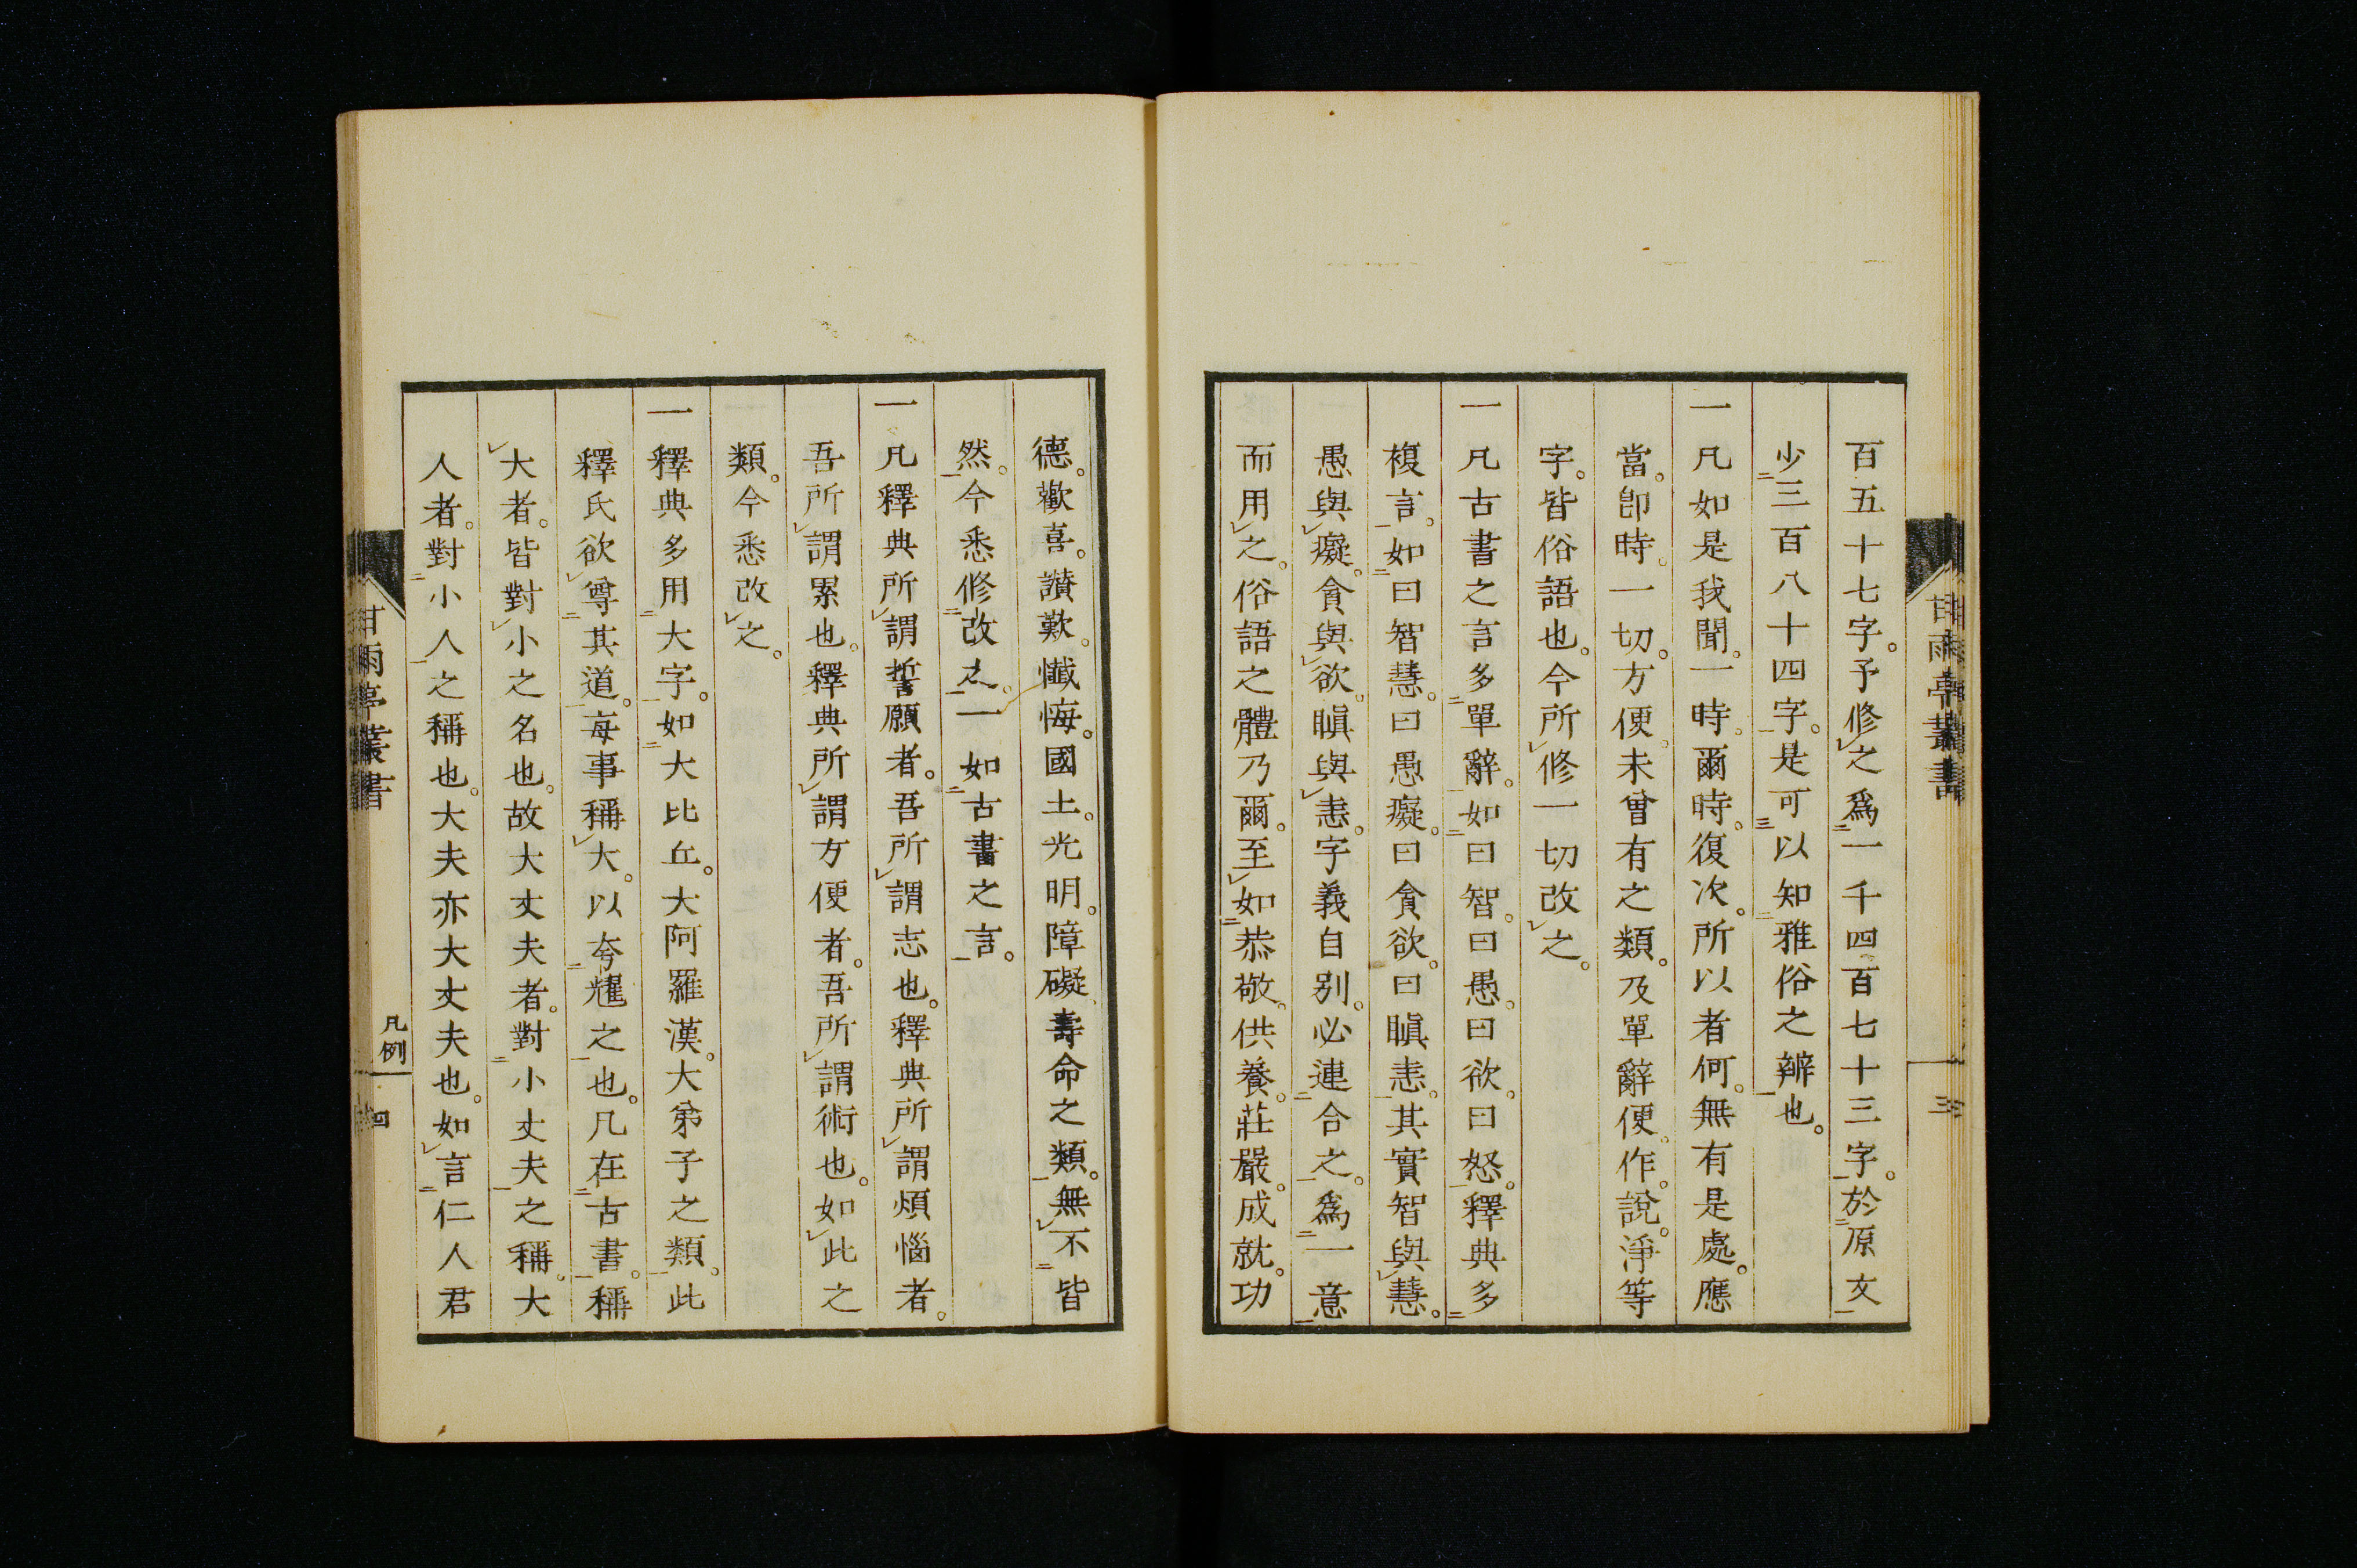 百五十七字。予修之爲一千四百七十三字。於原文
少三百八十四字。是可以知雅俗之辨也。
一凡如是我聞。一時。爾時。復次。所以者何。無有是處。應
當。卽時。一切。方便。未曾有之類。及單辭便。作。說。淨等
字。皆俗語也。今所修一切改之。
一凡古書之言多單辭。如曰智。曰愚。曰欲。曰怒。釋典多
複言。如曰智慧。曰愚癡。曰貪欲。曰瞋恚。其實智與慧。
愚與癡。貪與欲。瞋與恚。字義自别。必連合之。爲一意
而用之。俗語之體乃爾。至如恭敬。供養。莊嚴。成就。功
甘雨亭叢書
三
德。歡喜。讃歎。懺悔。國土。光明。障礙、壽命之類。無不皆
然。今悉修改之。一如古書之言。
一凡釋典所謂誓願者。吾所謂志也。釋典所謂煩惱者。
吾所謂累也。釋典所謂方便者。吾所謂術也。如此之
類。今悉改之。
一釋典多用大字。如大比丘。大阿羅漢。大弟子之類。此
釋氏欲尊其道。每事稱大。以夸耀之也。凡在古書。稱
大者。皆對小之名也。故大丈夫者。對小丈夫之稱。大
人者。對小人之稱也。大夫亦大丈夫也。如言仁人君
甘雨亭叢書
凡例
四